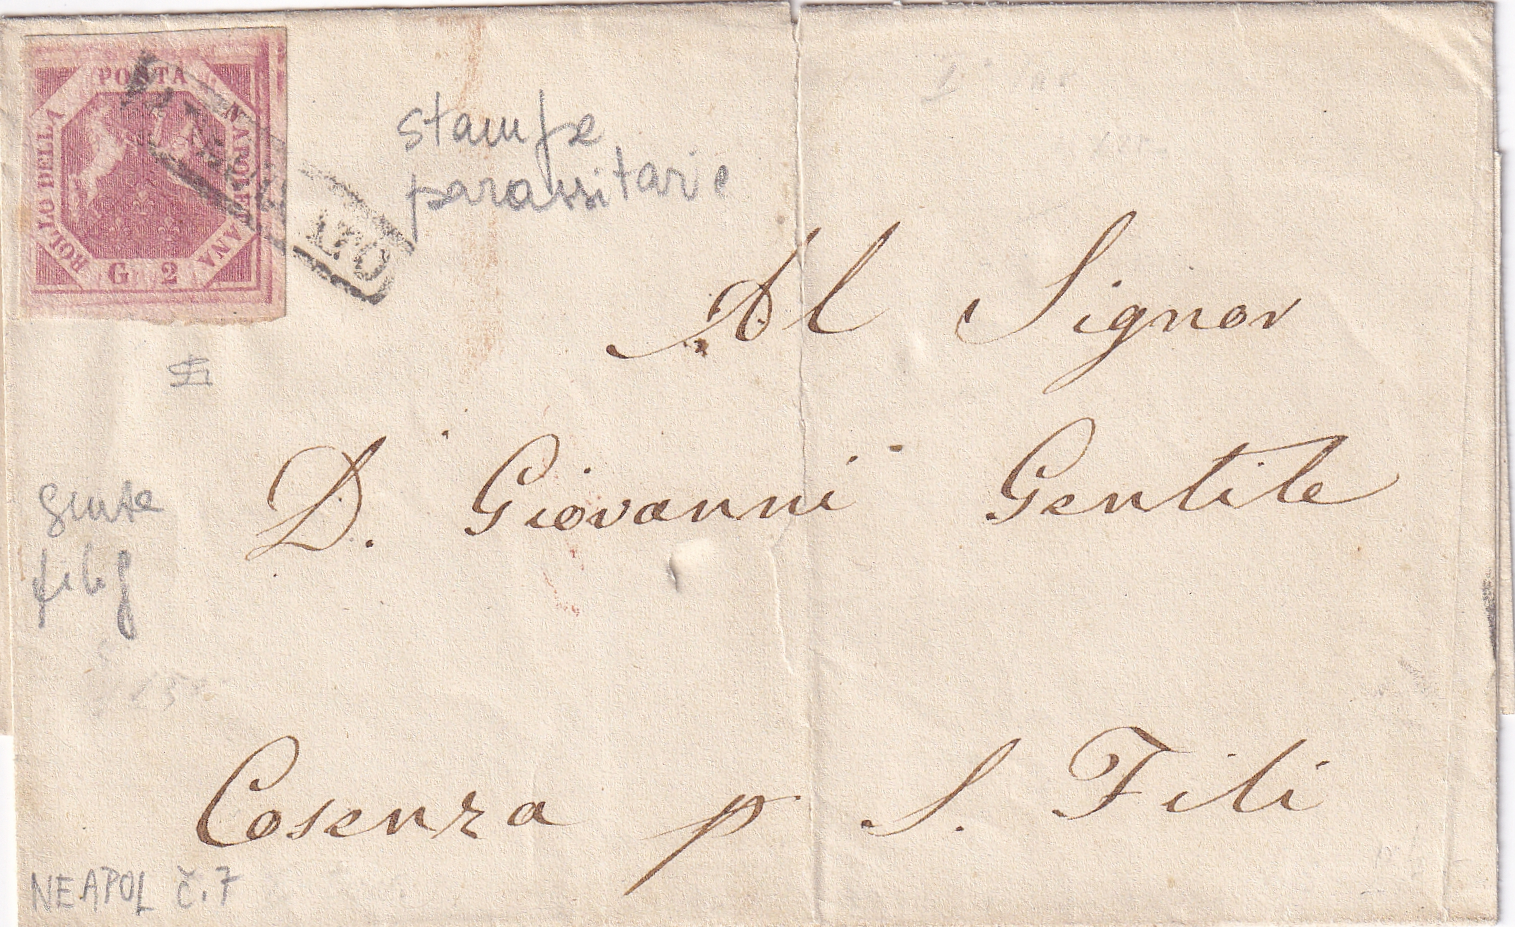 POSTA
NAPOLETANA
BOLLO DELLA
G 2
ATO
stampe
parassitarie
Al Signor
D. Giovanni Gentile
Cosenza p S. Fili
NEAPOL č.7